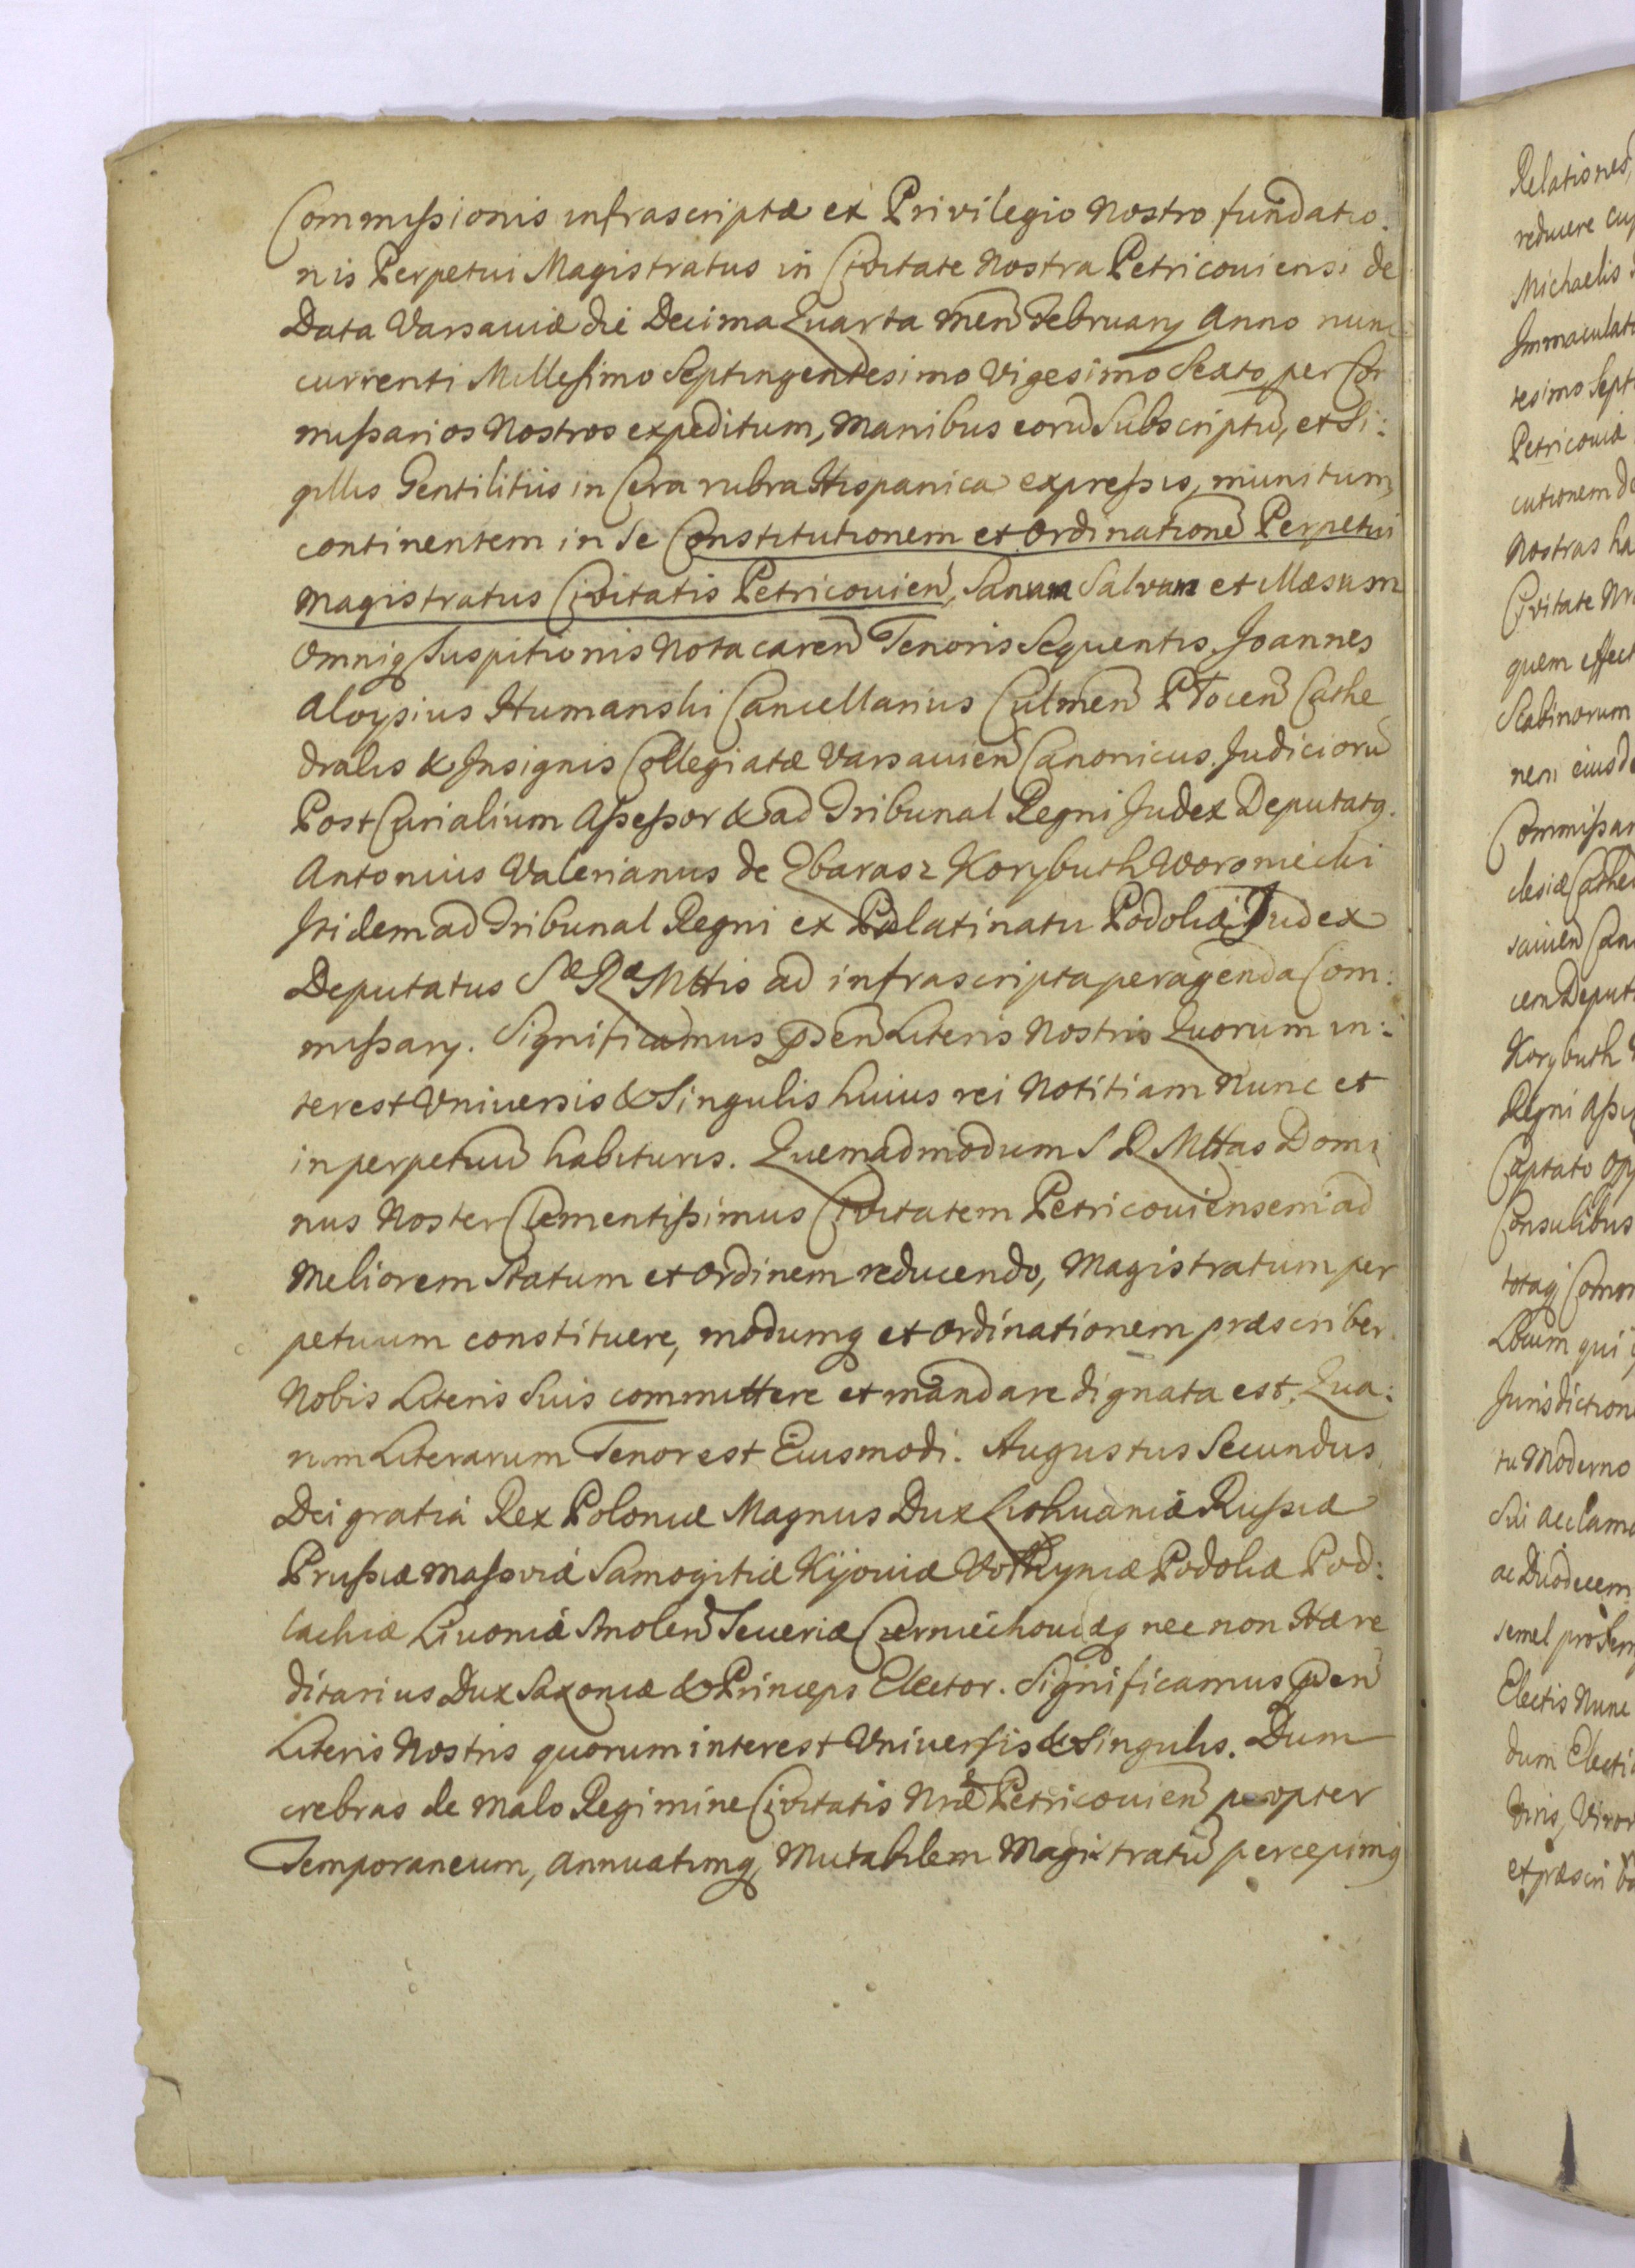 Commissionis infrascriptæ ex Privilegio Nostro fundatio.
nis Perpetui Magistratus in Civitate Nostra Petricoviensi de
Data Varsaviæ die Decima Quarta men̄ Februarij Anno nunc
currenti Millesimo Septingentesimo Vigesimo Sexto per Com
missarios Nostros expeditum, Manibus eorū Subscriptū, et Si:
gillis Gentilitiis in Cera rubra Hispanica expressis, munitum,
continentem in se Constitutionem et Ordinationē Perpetui
Magistratus Civitatis Petricovien̄, Sanum Salvum et illæsum
Omniq Suspitionis Nota caren̄ Tenoris Sequentis. Joannes
Aloysius Humanski Cancellarius Culmen̄ Płocen̄ Cathe
dralis & Insignis Collegiatæ Varsavien̄ Canonicus. Judiciorū
Post Curialium Assessor & ad Tribunal Regni Judex Deputatq.
Antonius Valerianus de Zbarasz Korybuth Woroniecki
Itidem ad Tribunal Regni ex Palatinatu Podoliæ Judex
Deputatus Sæ Ræ Mttis ad infrascripta peragenda Com:
missarij. Significamus pn̄sen̄ Literis Nostris Quorum in:
terest Universis & Singulis huius rei Notitiam Nunc et
in perpetuū habituris. Quemadmodum S R Mttas Domi
nus Noster Clementissimus Civitatem Petricoviensem ad
Meliorem Statum et Ordinem reducendo, Magistratum per
petuum constituere, modumq et Ordinationem præscriber.
Nobis Literis Suis committere et mandare dignata est. Qua:
rum Literarum Tenor est Eiusmodi. Augustus Secundus
Dei gratiá Rex Poloniæ Magnus Dux Lithuaniæ Russiæ
Prussiæ Massoviæ Samogitiæ Kijoviæ Volhyniæ Podoliæ Pod:
lachiæ Livoniæ Smolen̄ Severiæ Czerniechoviæq nec non Hære
ditarius Dux Saxoniæ & Princeps Elector. Significamus pn̄sen̄
Literis Nostris quorum interest Universis & Singulis. Dum
crebras de malo Regimine Civitatis Nræ Petricovien̄ propter
Temporaneum, annuatimq, Mutabilem Magistratū percepimq
Relationes,
Michaelis
Petricoviæ
cutionem
Nostras ha
Civitate
quem effect
Scabinorum
nem eiusd
Commissar
clesiæ Cathe
Korybuth
Captato
Consulibus
Locum qui
Jurisdiction
tu Moderno
Sui acclama
ac Duodecem
semel pro sem
Electis Nunc
dum Electi